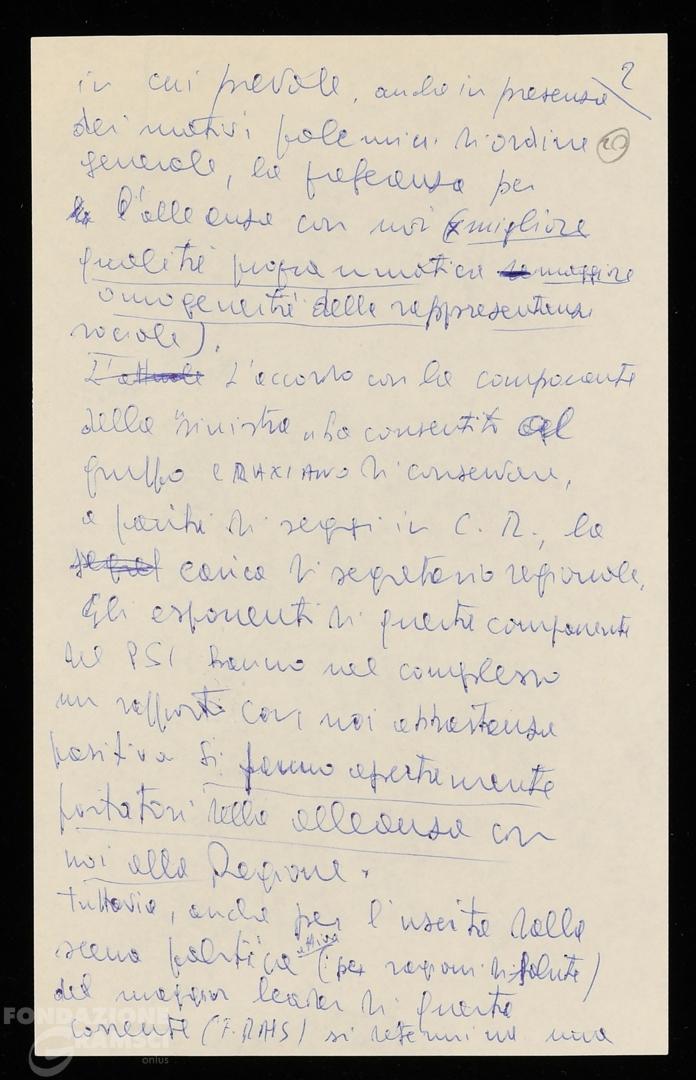 2
in cui prevale, anche in presenza
dei motivi polemici di ordine
20
generale, la preferenza per
la l'alleanza con noi (migliore
qualità programmatica maggiore
omogeneità della rappresentanza
sociale).
L'attuale L'accordo con la componente
della "sinistra" ha consentito al
gruppo CRAXIANO di conservare,
a parità di seggi in C. R., la
segret carica di segretario regionale.
Gli esponenti di questa componente
del PSI hanno nel complesso
un rapporto con noi abbastanza
positivo si fanno apertamente
portatori della alleanza con
noi alla Regione.
Tuttavia, anche per l'uscita dalla
scena politica attiva (per ragioni di salute)
del maggior leader di questa
corrente (F. RAIS) si determina una
FONDAZIONE
GRAMSCI
onlus